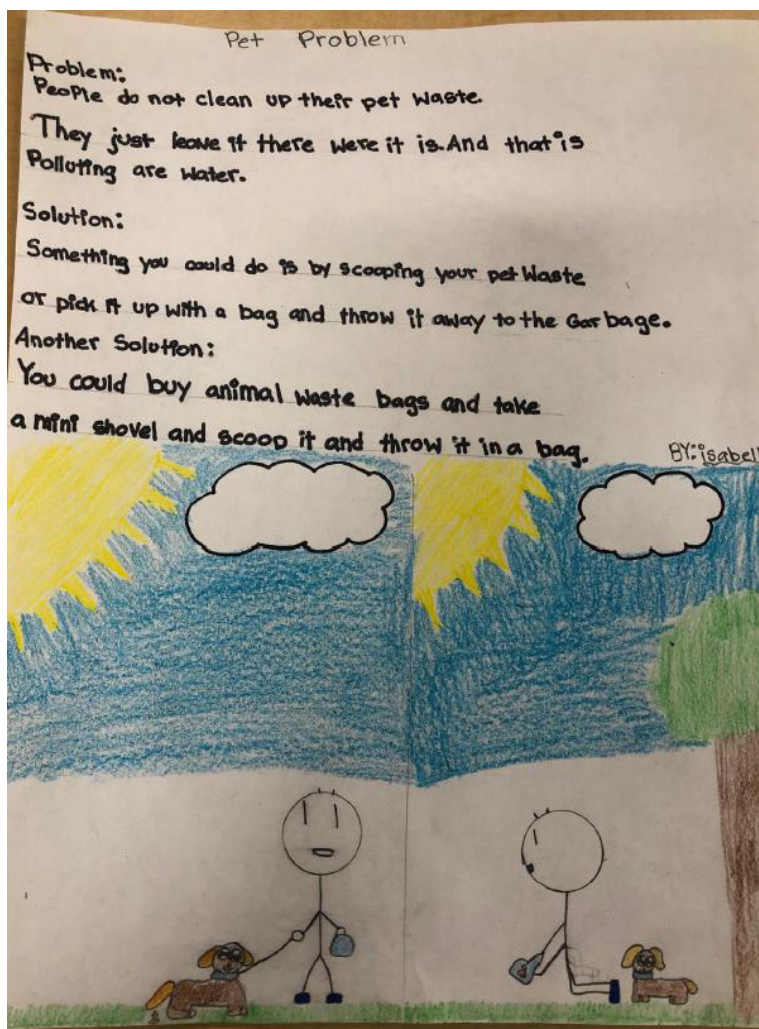 Pet Problem
Problem:
People do not clean up their pet waste.
They just leave it there were it is. And that is
Polluting are water.
Solution:
Something you could do is by scooping your pet waste
or pick it up with a bag and throw it away to the Garbage.
Another Solution:
You could buy animal waste bags and take
a mini shovel and scoop it and throw it in a bag.
BY: isabell